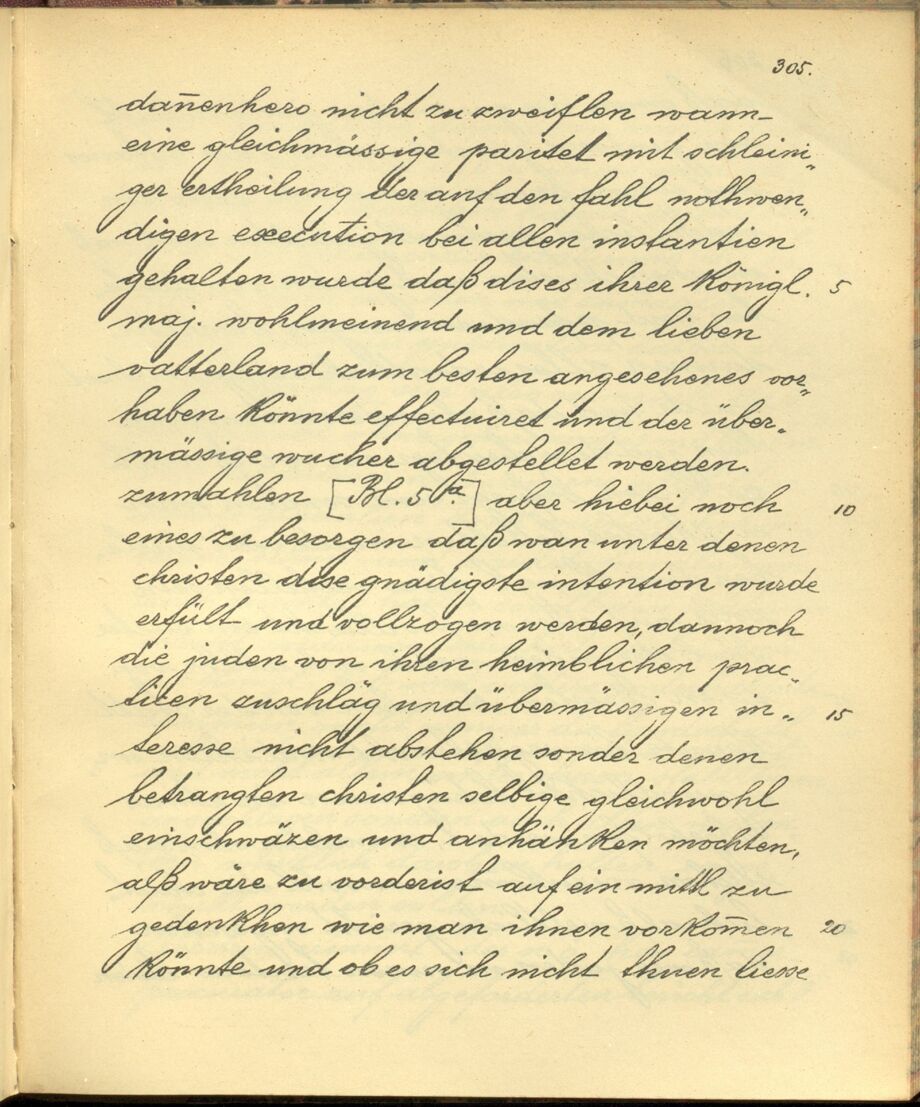 305.
dan̄enhero nicht zu zweiflen wann
eine gleichmässige paritet mit schleini„
ger ertheilung der auf den fahl nothwen„
digen execution bei allen instantien
gehalten wurde daß dises ihrer Königl. 5
maj. wohlmeinend und dem lieben
vatterland zum besten angesehenes vor„
haben könnte effectuiret und der über„
mässige wucher abgestellet werden.
zumahlen [Bl. 5a.] aber hiebei noch 10
eines zu besorgen daß wan unter denen
christen dise gnädigste intention wurde
erfült und vollzogen werden, dannoch
die juden von ihren heimblichen prac„
ticen auschläg und übermässigen in„ 15
teresse nicht abstehen sonder denen
betrangten christen selbige gleichwohl
einschwäzen und anhänken möchten,
alß wäre zu vorderist auf ein mittl zu
gedenkhen wie man ihnen vorkom̄en 20
könnte und ob es sich nicht thuen liesse